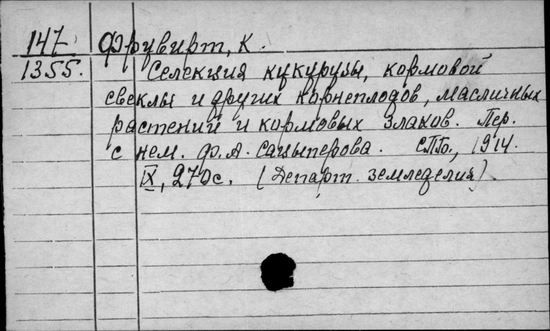 147 Фрувирт, К.
1355. Селекция кукурузы, кормовой
свеклы и других корнеплодов, масличных
растений и кормовых злаков. Пер.
с нем. ф. А. Сацыперова. СПб., 1914.
IX, 270с. (Департ. земледелия)